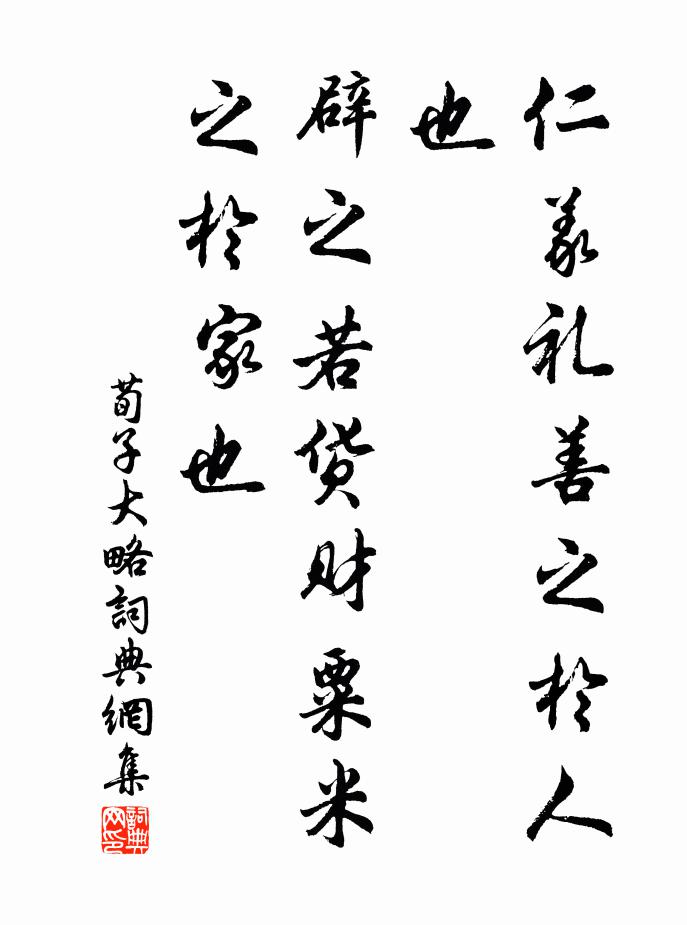 仁义礼善之于人
也
辟之若货财粟米
之于家也
荀子大略词典网集
词典
网印